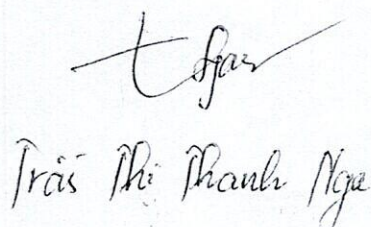 Trần Thị Thanh Nga